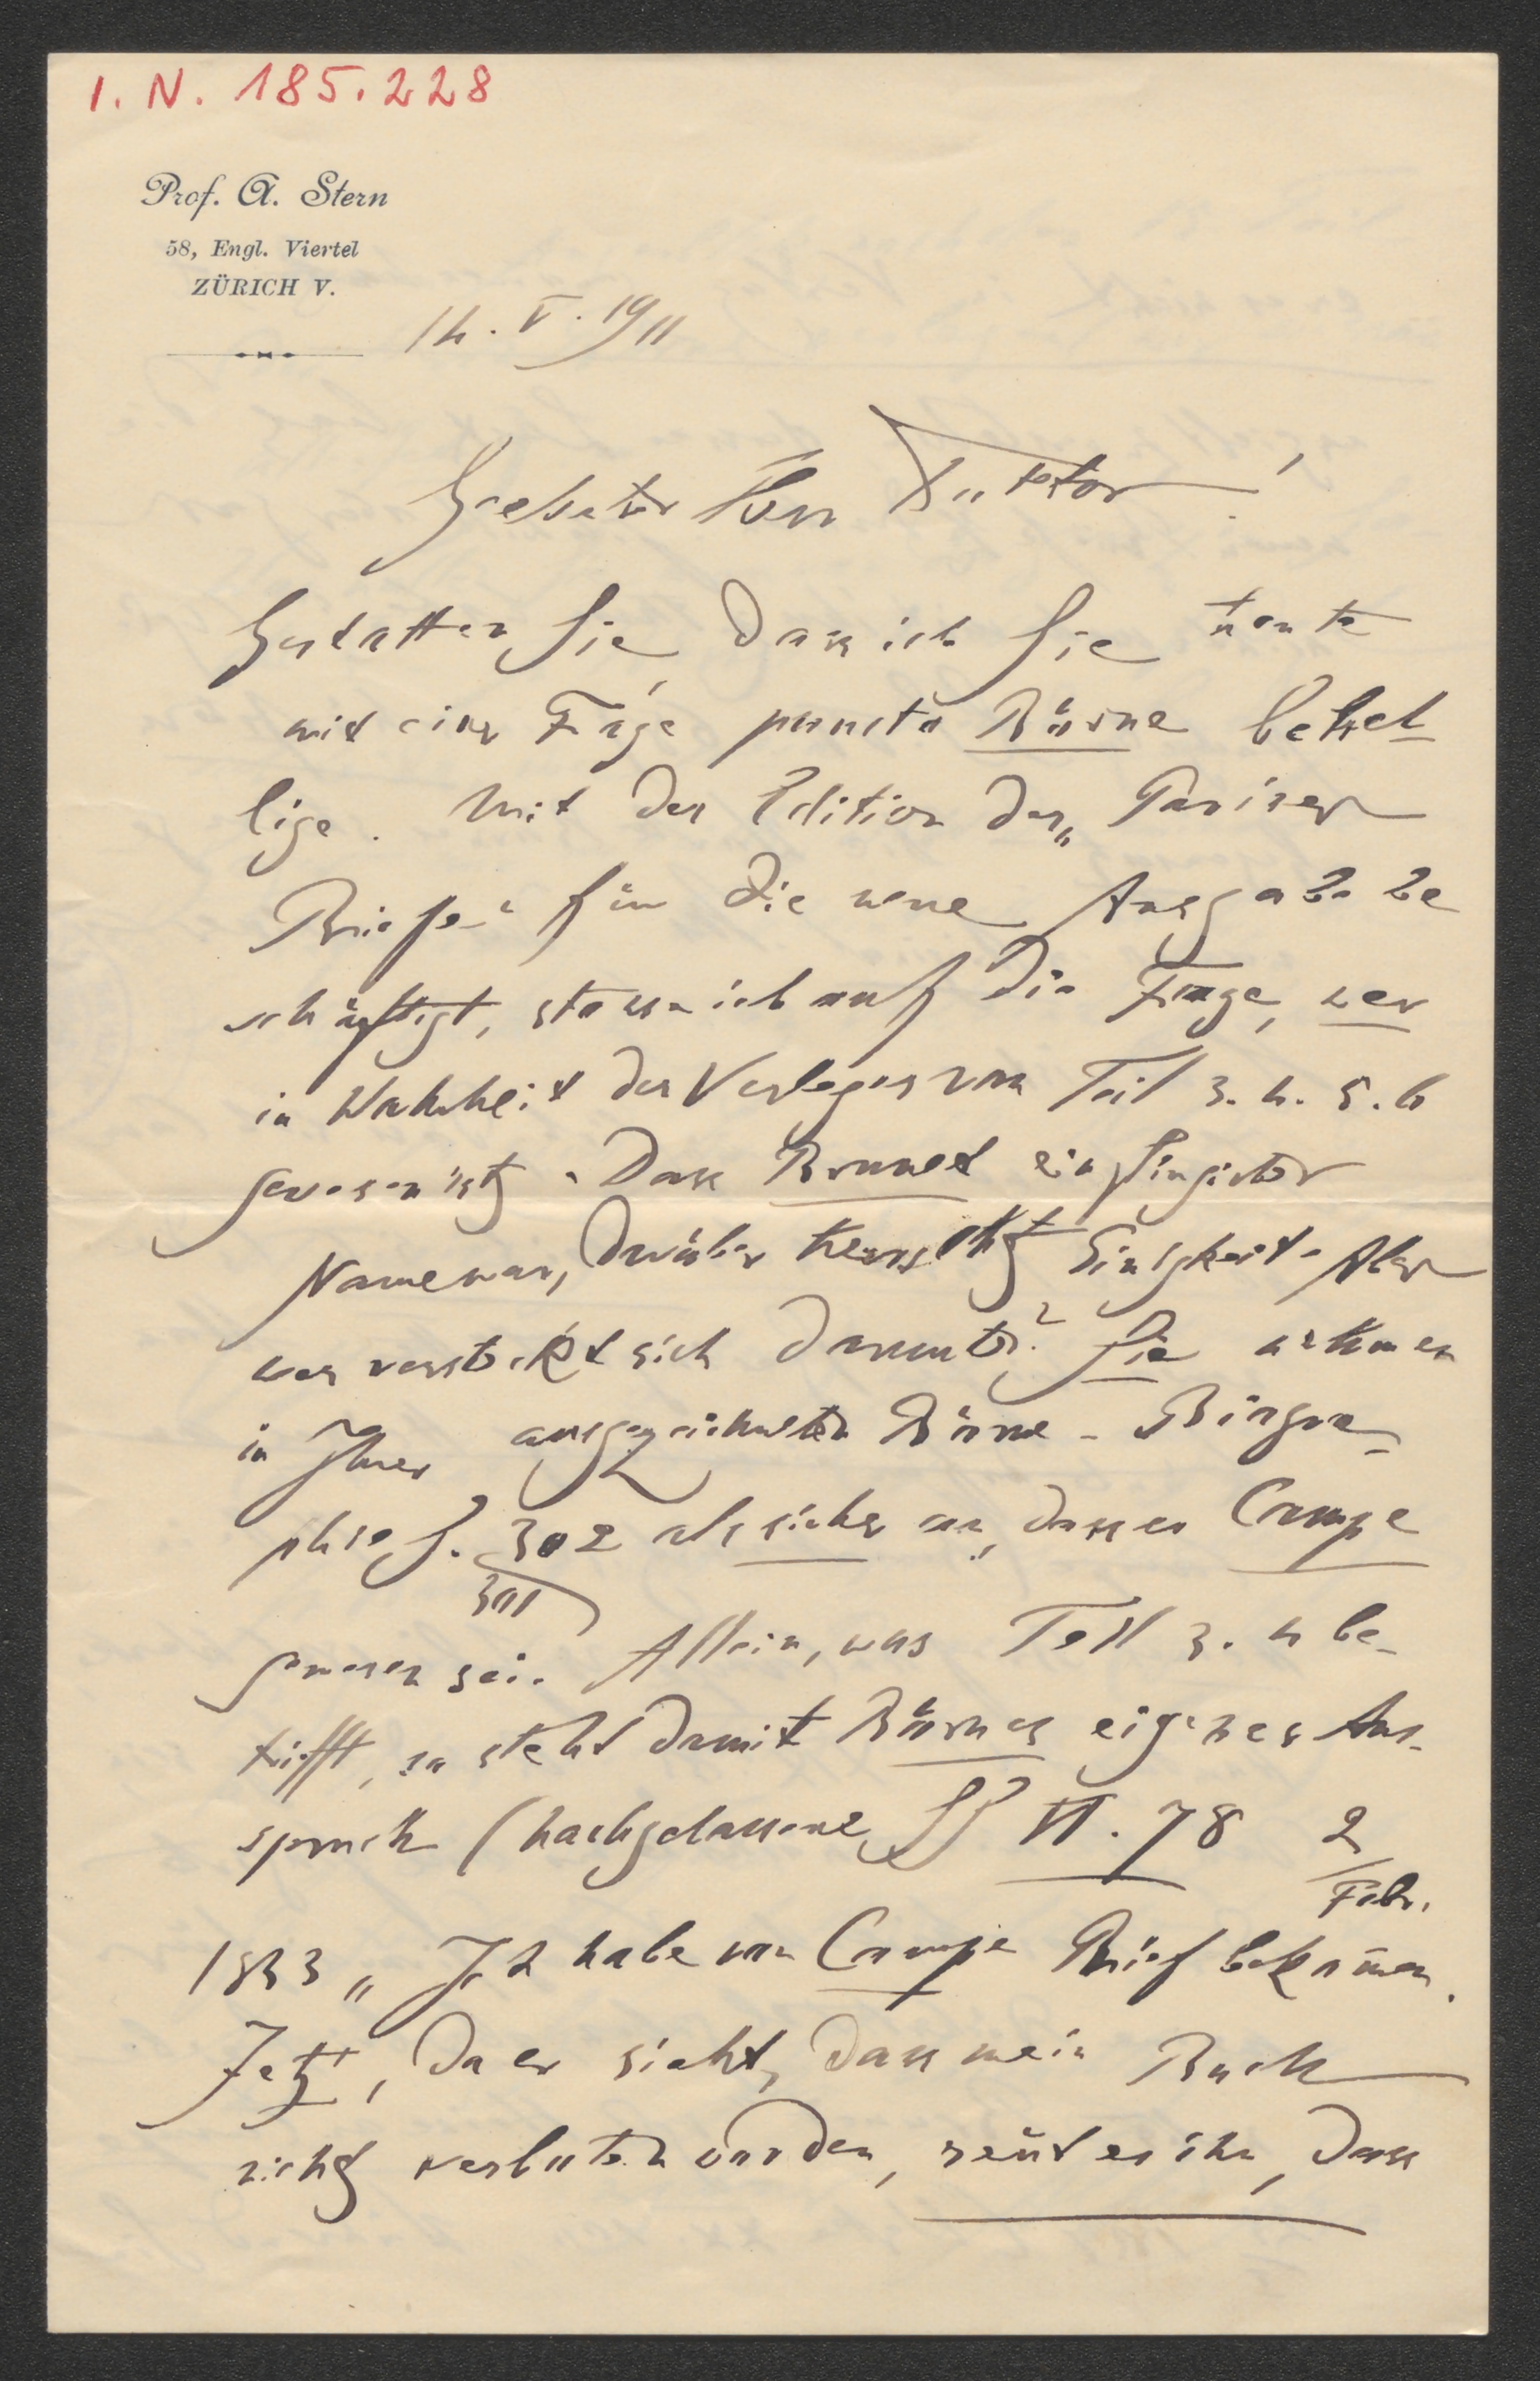 I. N. 185.228
Prof. A. Stern
58, Engl. Viertel
ZÜRICH V.
14. V. 1911
Geehrter Herr Doktor!
Gestatten Sie, dass ich Sie heute
mit einer Frage puncto Börne behel-
lige. Mit der Edition der „Pariser
Briefe" für die neue Ausgabe be
schäftigt, stosse ich auf die Frage, wer
in Wahrheit der Verleger von Teil 3. 4. 5. 6
gewesen ist. Dass Brunet ein fingirter
Name war, darüber herrscht Einigkeit. Aber
wer versteckt sich darunter? Sie nehmen
in Ihrer ausgezeichneten Börne-Biogra-
phie S. 302 als sicher an, dass es Campe
301
gewesen sei. Allein, was Teil 3. 4 be-
trifft, so steht damit Börnes eigener Aus-
spruch (Nachgelassene SS VI. 78 2
Febr.
1833 „Ich habe von Campe Brief bekom̄en.
Jetzt, da er sieht, dass mein Buch
nicht verboten worden, reut es ihn, dass